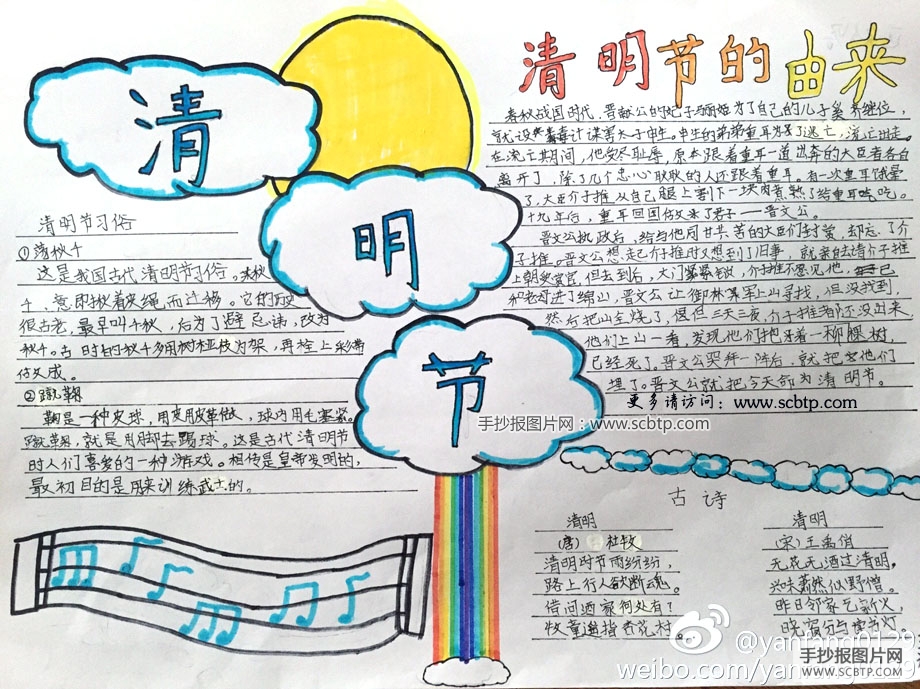 清
明
节
清明节的由来
春秋战国时代，晋献公的妃子骊姬为了自己的儿子奚齐继位，
就设毒计谋害太子申生，申生的弟弟重耳为了逃亡，流亡出走。
在流亡期间，他受尽耻辱，原本跟着重耳一道出奔的大臣者各自
离开了，除了几个忠心耿耿的人还跟着重耳。有一次重耳饿晕
了，大臣介子推从自己腿上割下一块肉煮熟了给重耳吃吃。
十九年后，重耳回国做来了君子——晋文公。
晋文公执政后，给与他同甘共苦的大臣们封赏，却忘了介
子推。晋文公想起介子推时又想到了旧事，就亲自去请介子推
上朝受赏官，但去到后，大门紧紧锁，介子推不愿见他，
和老母进了绵山，晋文公让御林军上山寻找，但没找到，
然后把山全烧了，
他们上山一看，发现他们抱牙着一柳棵树，
已经死了。晋文公哭拜一阵后，就把
埋了。晋文公就把今天命为清明节。
更多请访问：www.scbtp.com
清明节习俗
①荡秋千
这是我国古代清明节习俗。秋
千，意即揪着皮绳而迁移。它的历史
很古老，最早叫千秋，后为了避忌讳，改为
秋千。古时的秋千多用树桠枝为架，再栓上彩带
做成。
②蹴鞠
鞠是一种皮球，用皮革做，球内用毛塞紧。
蹴鞠，就是用脚去踢球。这是古代清明节
时人们喜爱的一种游戏。相传是皇帝发明的，
最初目的是用来训练武士的。
手抄报图片网：www.scbtp.com
古诗
清明
（唐）杜牧
清明时节雨纷纷，
路上行人欲断魂。
借问酒家何处有？
牧童遥指杏花村。
清明
（宋）王禹偁
无花无酒过清明，
兴味萧然似野僧。
昨日邻家乞新火，
晓窗分与读书灯。
@yanfang0129
weibo.com/yanfang0129
手抄报图片网
www.scbtp.com